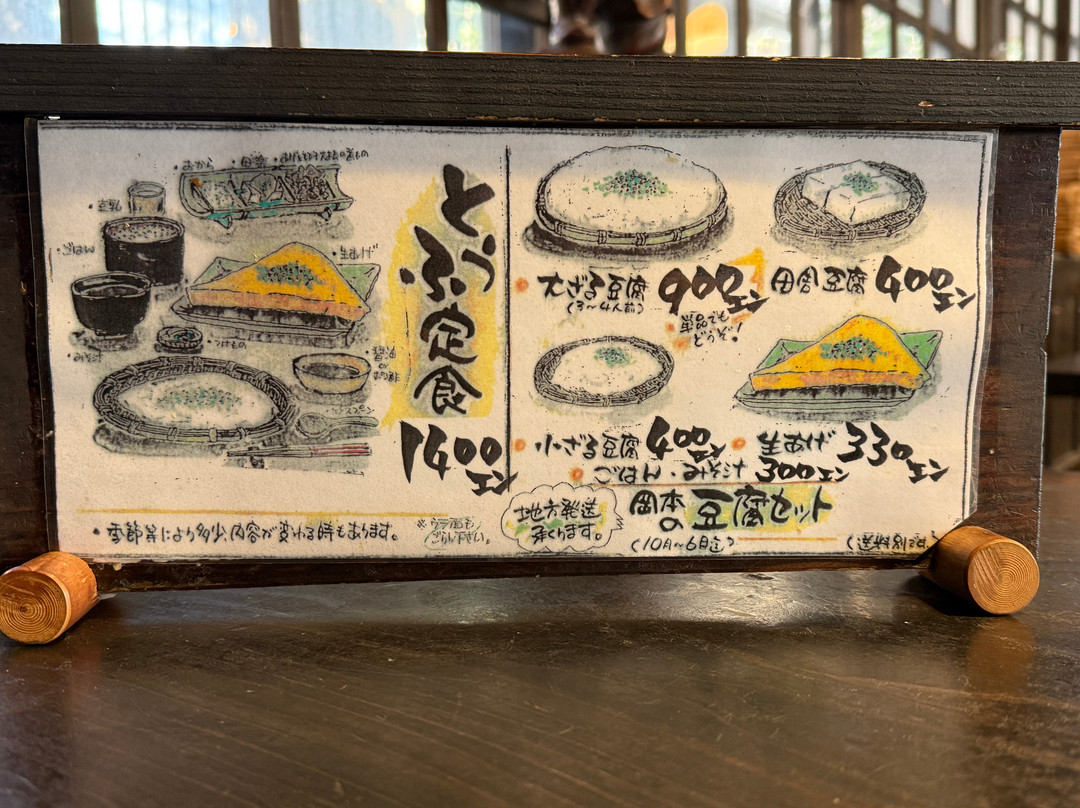 ・おから
・豆乳
・ごはん
・生あげ
・みそ汁
・つけもの
とうふ定食
1400エン
・季節等により多少、内容が変わる時もあります。
※ウラ面もごらん下さい。
大ざる豆腐 900エン
(3〜4人前)
単品でもどうぞ!
田舎豆腐 400エン
小ざる豆腐 400エン
生あげ 330エン
ごはん・みそ汁 300エン
地方発送承ります。
岡本の豆腐セット
(10月〜6月迄)
(送料別です)